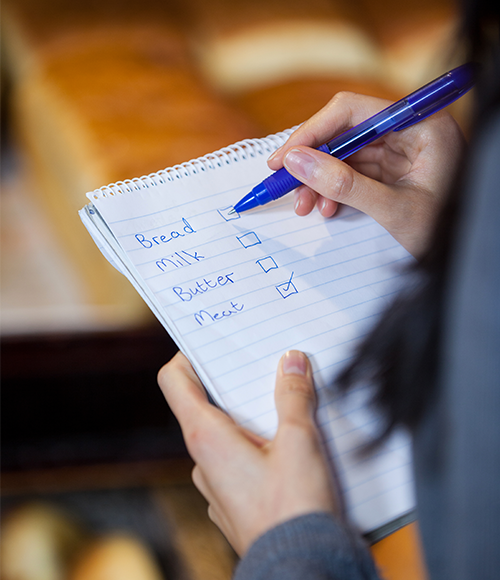 Bread
Milk
Butter
Meat